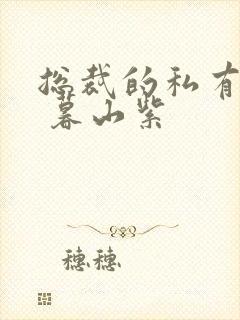 总裁的私有
暮山紫
穗穗